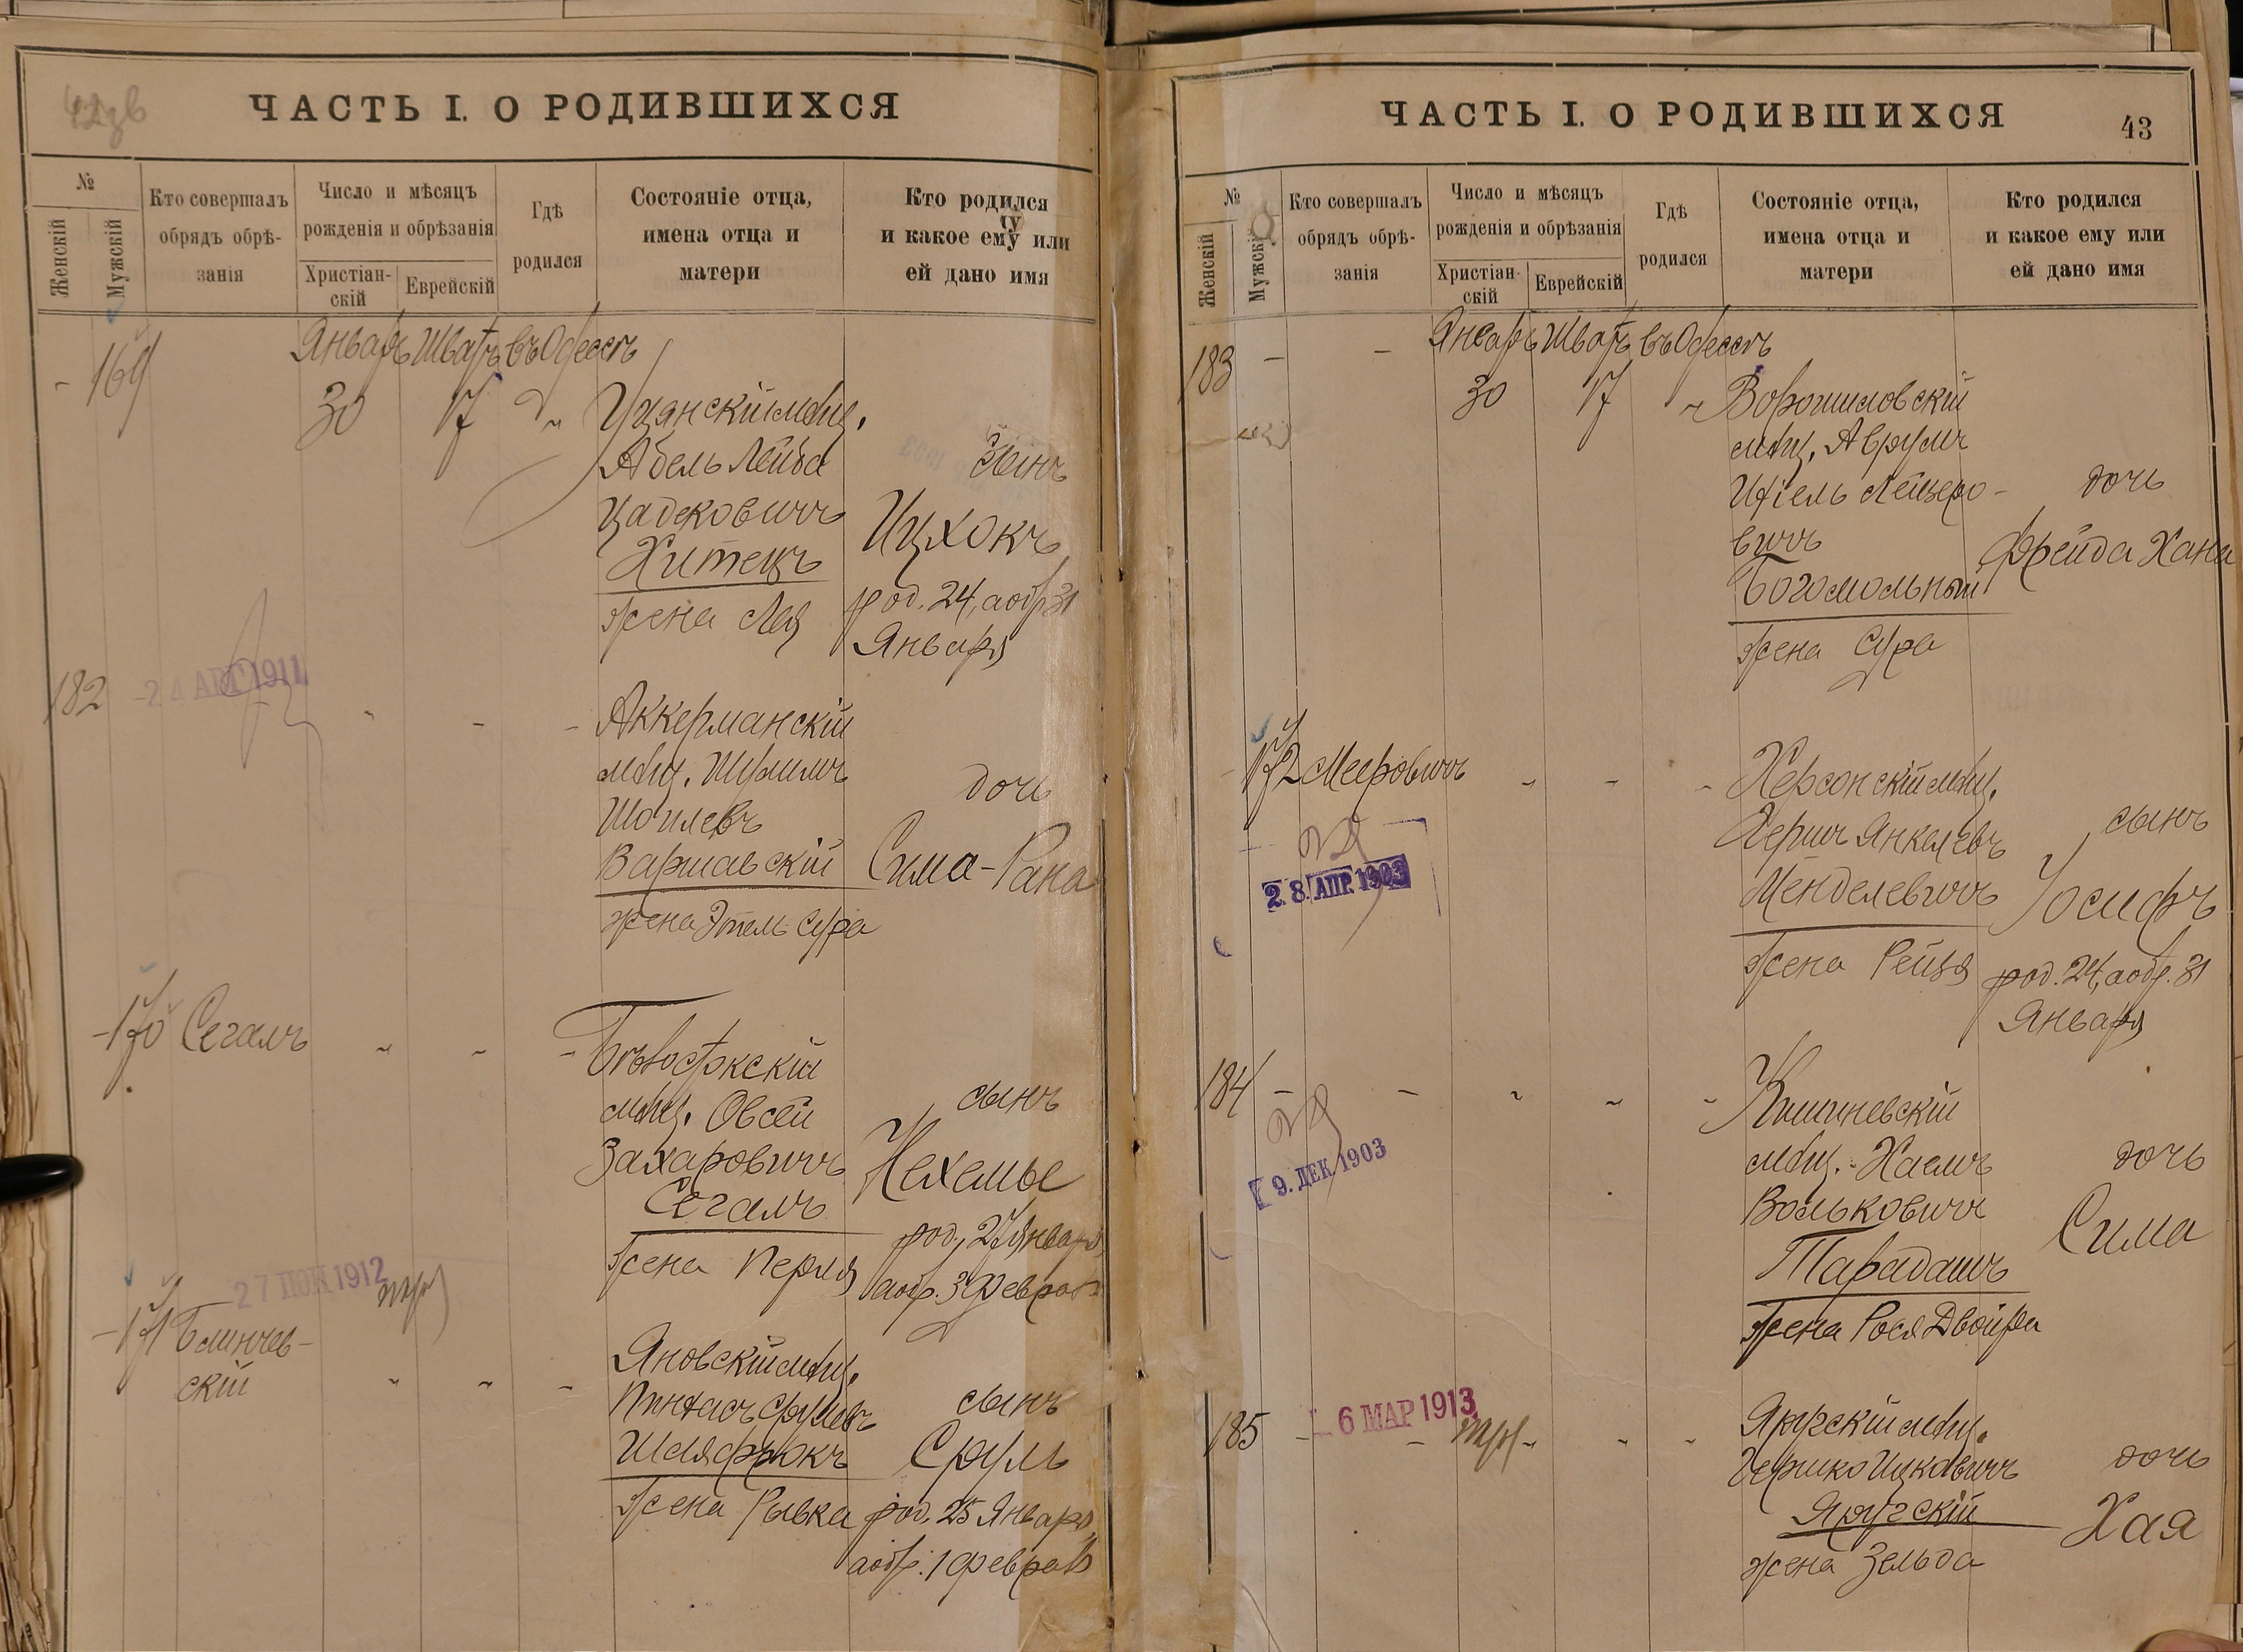 ЧАСТЬ I. О РОДИВШИХСЯ
№
Женскій
Мужскій
Кто совершалъ
обрядъ обрѣ-
занія
Число и мѣсяцъ
рожденія и обрѣзанія
Христіан-
скій
Еврейскій
Гдѣ
родился
Состояніе отца,
имена отца и
матери
Кто родился
и какое ему или
ей дано имя
169
Январь Шватъ въ Одессѣ
30 17
мѣщ.
Абель Лейба
Цадековичъ
Хитецъ
жена Лея
сынъ
Ицхокъ
род. 24, а обр 31
Января
182
24 АВГ 1911
Аккерманскій
мѣщ. Шулимъ
Шоилевъ
Варшавскій
жена Этель Сура
дочь
Сима-Рана
170 Сегалъ
мѣщ. Овсей
Захаровичъ
Сегалъ
жена Перля
сынъ
Нехемье
род. 27 Января,
а обр. 3 Февраля
27 1912
171 Блинчев-
скій
Яновскій мѣщ.
Пинхасъ Срулевъ
жена Рывка
сынъ
Сруль
род. 25 Января,
а обр. 1 Февраля
ЧАСТЬ I. О РОДИВШИХСЯ
43
№
Женскій
Мужскій
Кто совершалъ
обрядъ обрѣ-
занія
Число и мѣсяцъ
рожденія и обрѣзанія
Христіан-
скій
Еврейскій
Гдѣ
родился
Состояніе отца,
имена отца и
матери
Кто родился
и какое ему или
ей дано имя
183
Январь Шватъ въ Одессѣ
30 17
Ворошиловскій
мѣщ. Аврумъ
Ихіель Лейзеро-
вичъ
Богомольный
жена Сура
дочь
Фрейда Хана
172 Меировичъ
28. АПР. 1903
Херсонскій мѣщ.
Герш Янкелевъ
Менделевичъ
жена Рейзя
сынъ
Іосифъ
род. 24, а обр. 31
Января
184
9. ДЕК. 1903
Кишиневскій
мѣщ. Хаемъ
Вольковичъ
Тарадашъ
жена Рося Двойра
дочь
Сима
185
6 МАР 1913
Яругскій мѣщ.
Гершко Ицковичъ
Яругскій
жена Зельда
дочь
Хая